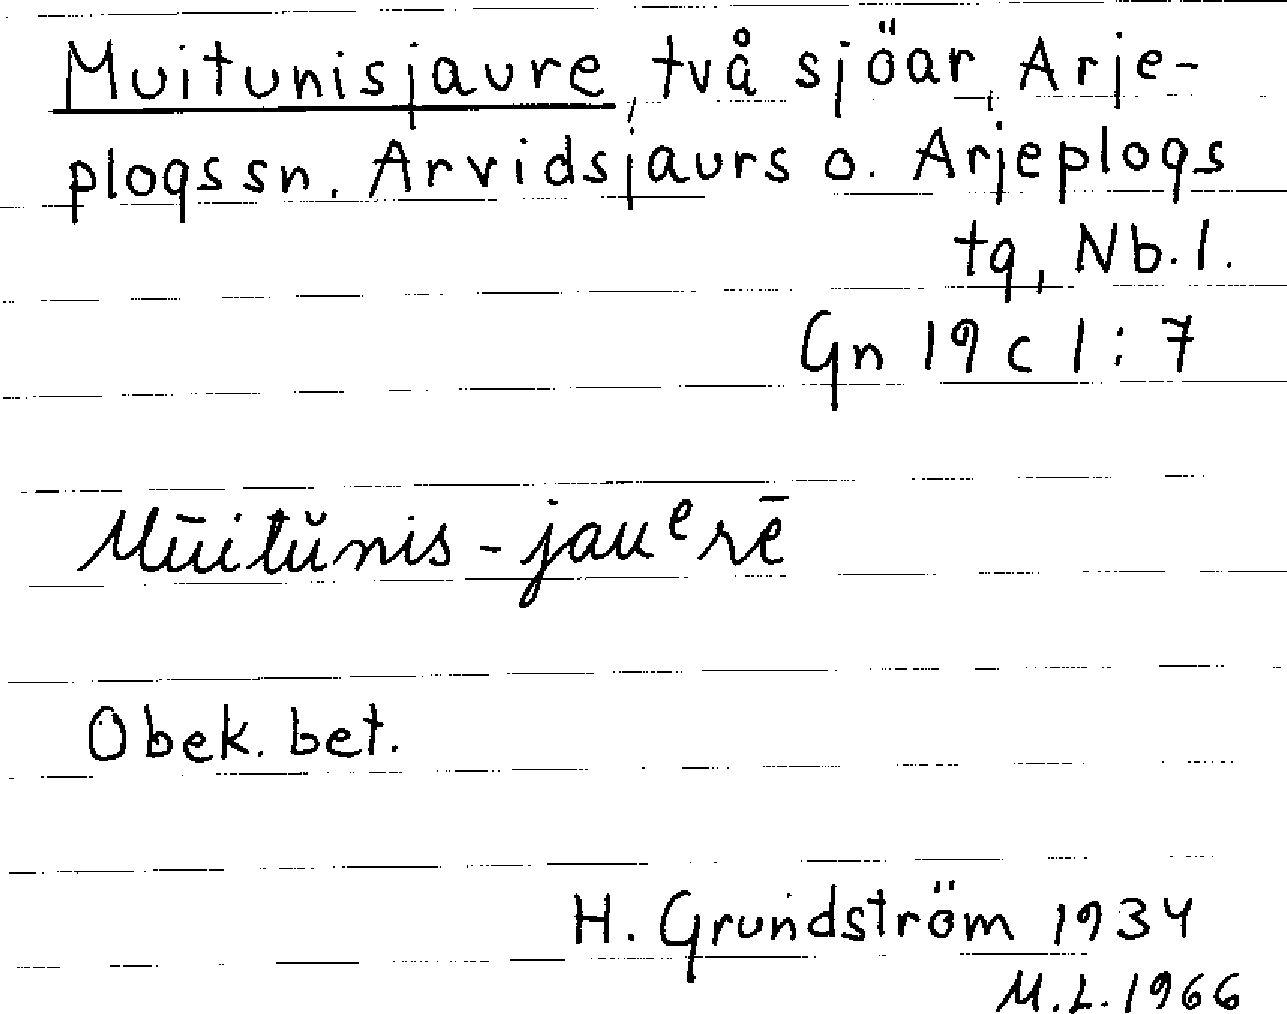 Muitunisjaure, två sjöar, Arje-
plogs sn. Arvidsjaurs o. Arjeplogs
tg, Nb. l.
Gn 19 c 1 : 7
Mūitŭnis-jauᵉrē
Obek. bet.
H. Grundström 1934
M.L. 1966